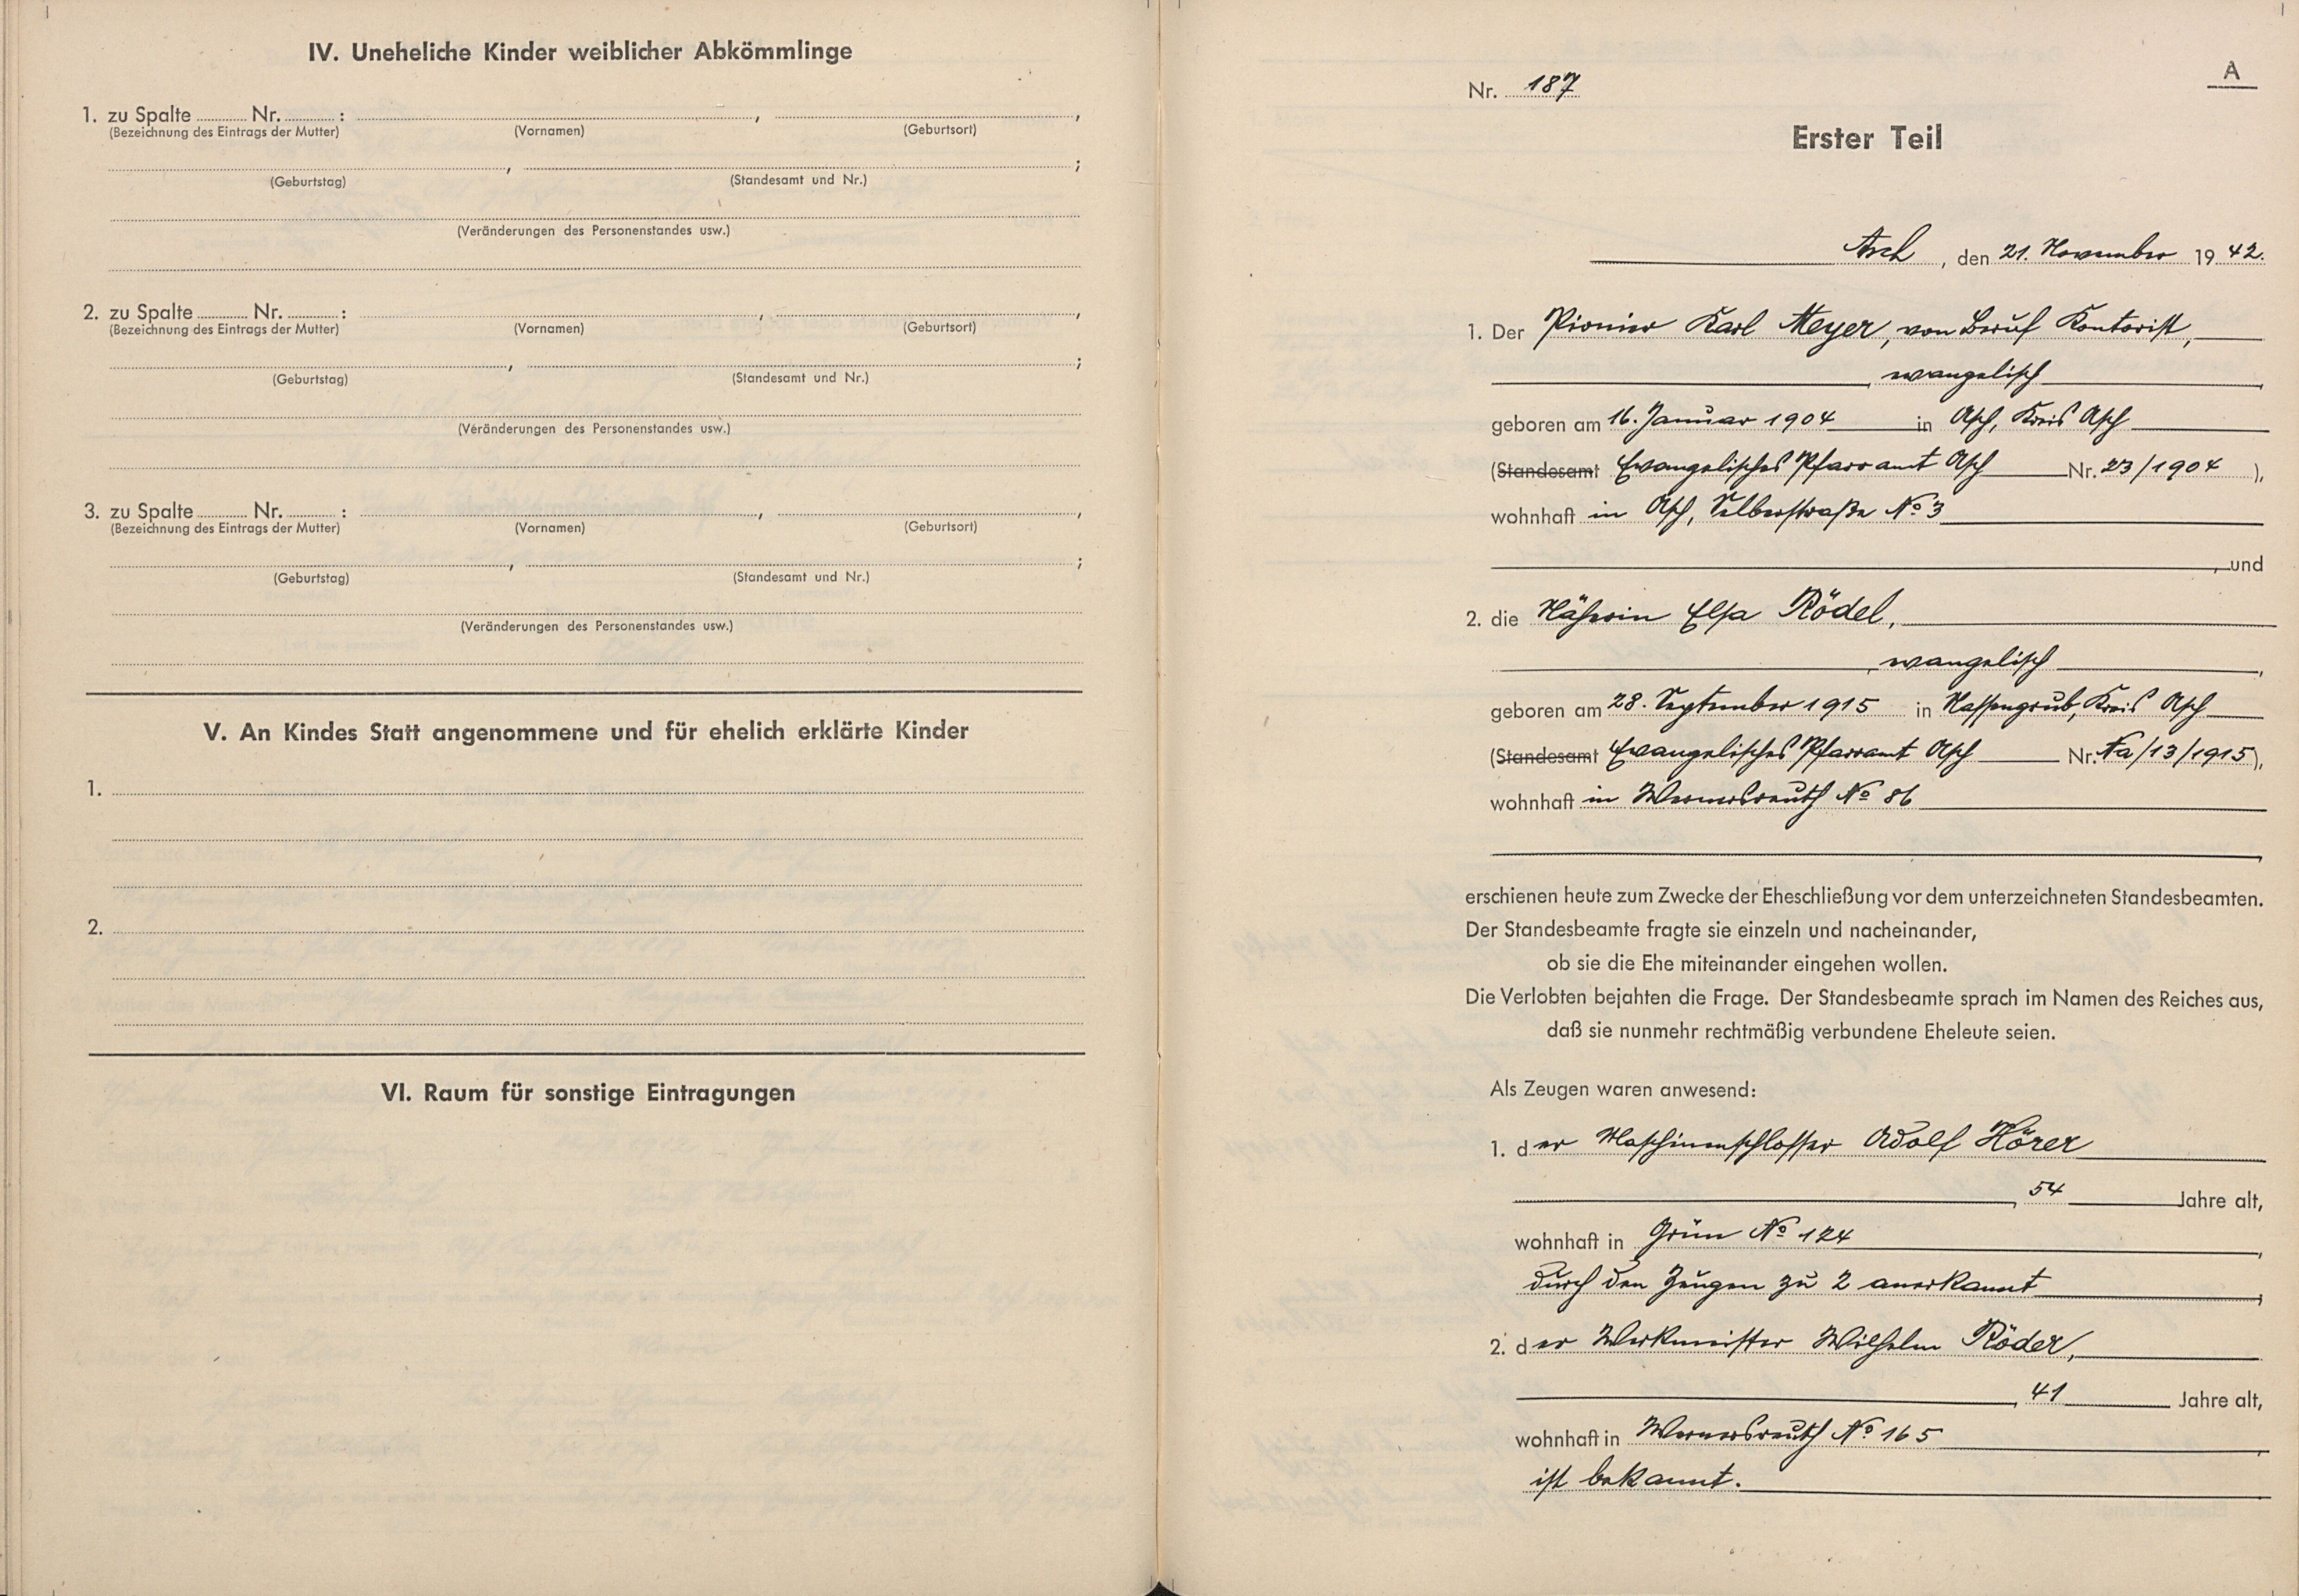 IV. Uneheliche Kinder weiblicher Abkömmlinge
1. zu Spalte ........ Nr. ........ :
(Bezeichnung des Eintrags der Mutter) (Vornamen) (Geburtsort)
(Geburtstag) (Standesamt und Nr.)
(Veränderungen des Personenstandes usw.)
2. zu Spalte ........ Nr. ........ :
(Bezeichnung des Eintrags der Mutter) (Vornamen) (Geburtsort)
(Geburtstag) (Standesamt und Nr.)
(Veränderungen des Personenstandes usw.)
3. zu Spalte ........ Nr. ........ :
(Bezeichnung des Eintrags der Mutter) (Vornamen) (Geburtsort)
(Geburtstag) (Standesamt und Nr.)
(Veränderungen des Personenstandes usw.)
V. An Kindes Statt angenommene und für ehelich erklärte Kinder
1.
2.
VI. Raum für sonstige Eintragungen
A
Nr. 187
Erster Teil
Asch, den 21. November 1942.
1. Der Pionier Karl Meyer, von Beruf Kontorist,
, evangelisch,
geboren am 16. Januar 1904 in Asch, Kreis Asch
(Standesamt Evangelisches Pfarramt Asch Nr. 23/1904),
wohnhaft in Asch, Selberstraße No 3
, und
2. die Näherin Elsa Rödel,
, evangelisch,
geboren am 28. September 1915 in Nassengrub, Kreis Asch
(Standesamt Evangelisches Pfarramt Asch Nr. Na/13/1915),
wohnhaft in Wernersreuth No 86
erschienen heute zum Zwecke der Eheschließung vor dem unterzeichneten Standesbeamten.
Der Standesbeamte fragte sie einzeln und nacheinander,
ob sie die Ehe miteinander eingehen wollen.
Die Verlobten bejahten die Frage. Der Standesbeamte sprach im Namen des Reiches aus,
daß sie nunmehr rechtmäßig verbundene Eheleute seien.
Als Zeugen waren anwesend:
1. der Maschinenschlosser Adolf Hörer
, 54 Jahre alt,
wohnhaft in Grün No 124,
durch den Zeugen zu 2 anerkannt,
2. der Werkmeister Wilhelm Röder,
, 41 Jahre alt,
wohnhaft in Wernersreuth No 165,
ist bekannt.